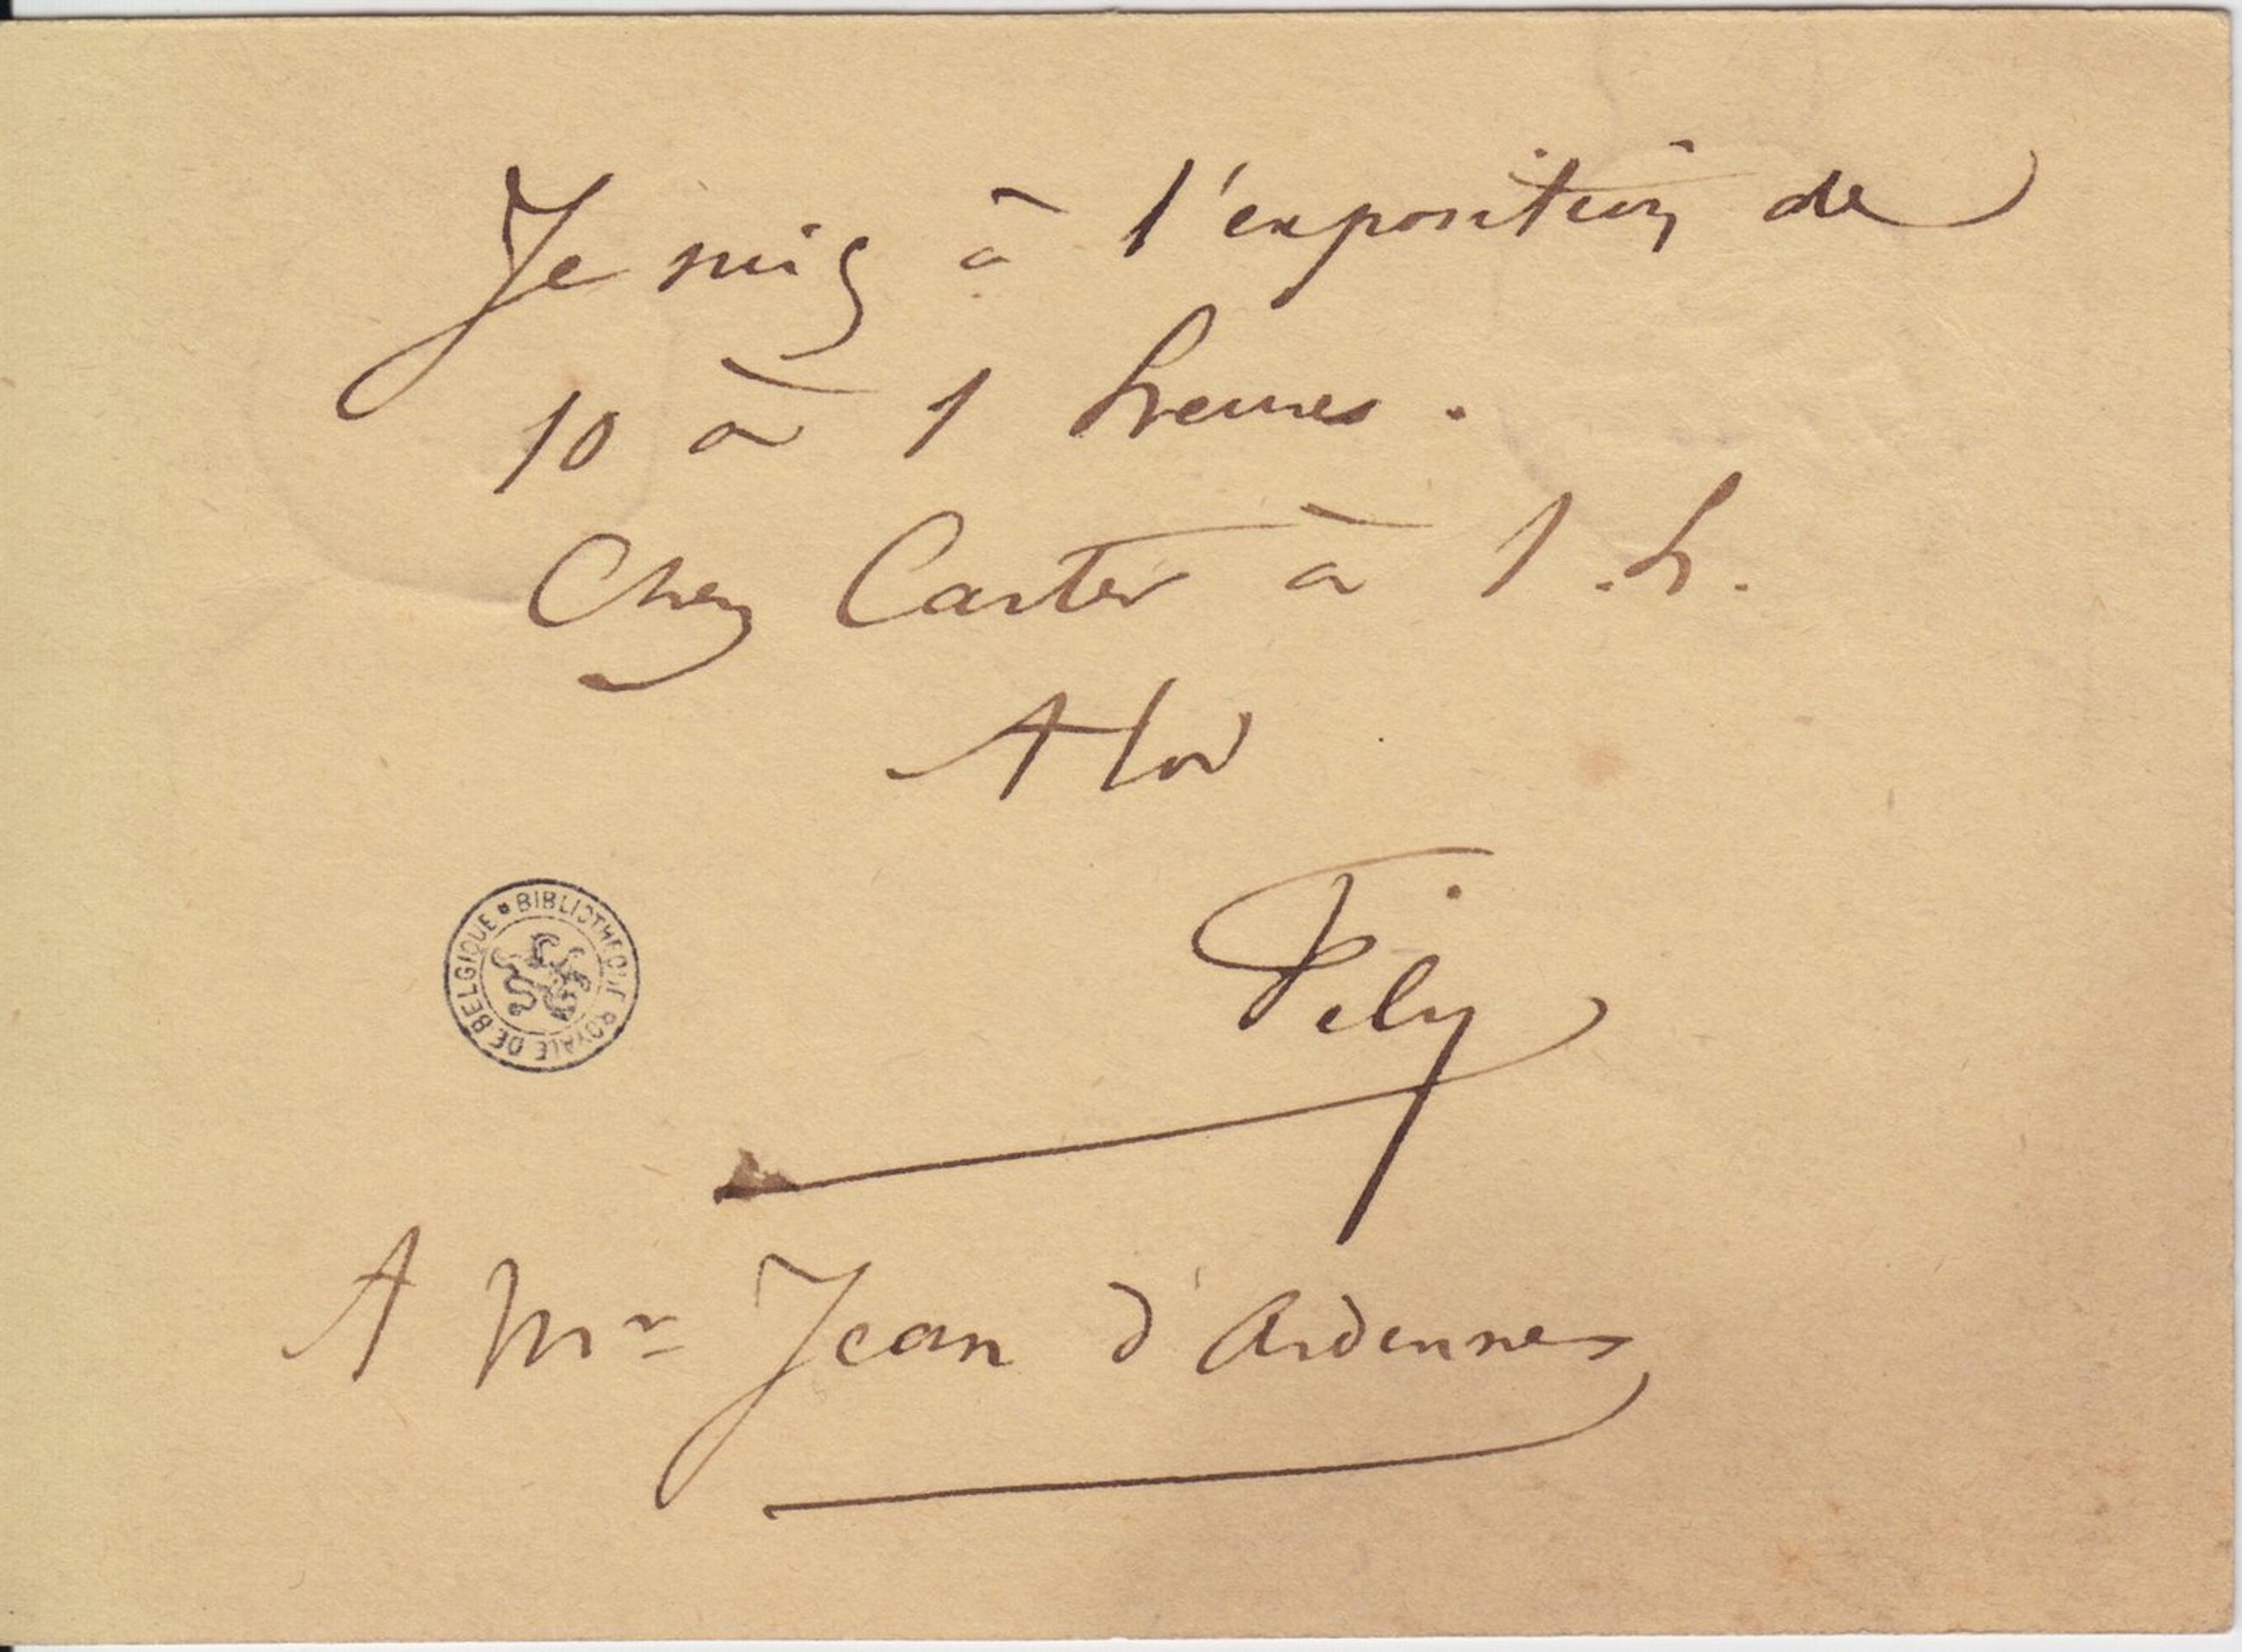 Je suis à l'exposition de
10 à 1 heures.
Chez Carter à 1.h.
A toi
Fély
BIBLIOTHEQUE ROYALE DE BELGIQUE
A Mr Jean d'Ardennes